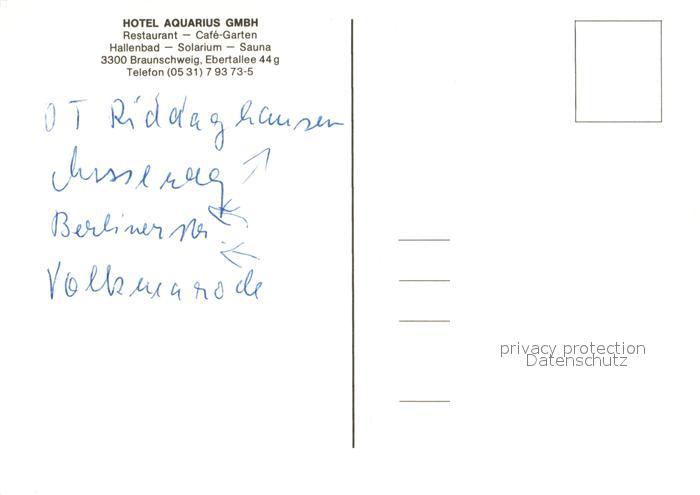 HOTEL AQUARIUS GMBH
Restaurant — Café-Garten
Hallenbad — Solarium — Sauna
3300 Braunschweig, Ebertallee 44g
Telefon (05 31) 7 93 73-5
OT Riddaghausen
Messeweg
Berlinerstr.
Volkmarode
privacy protection
Datenschutz